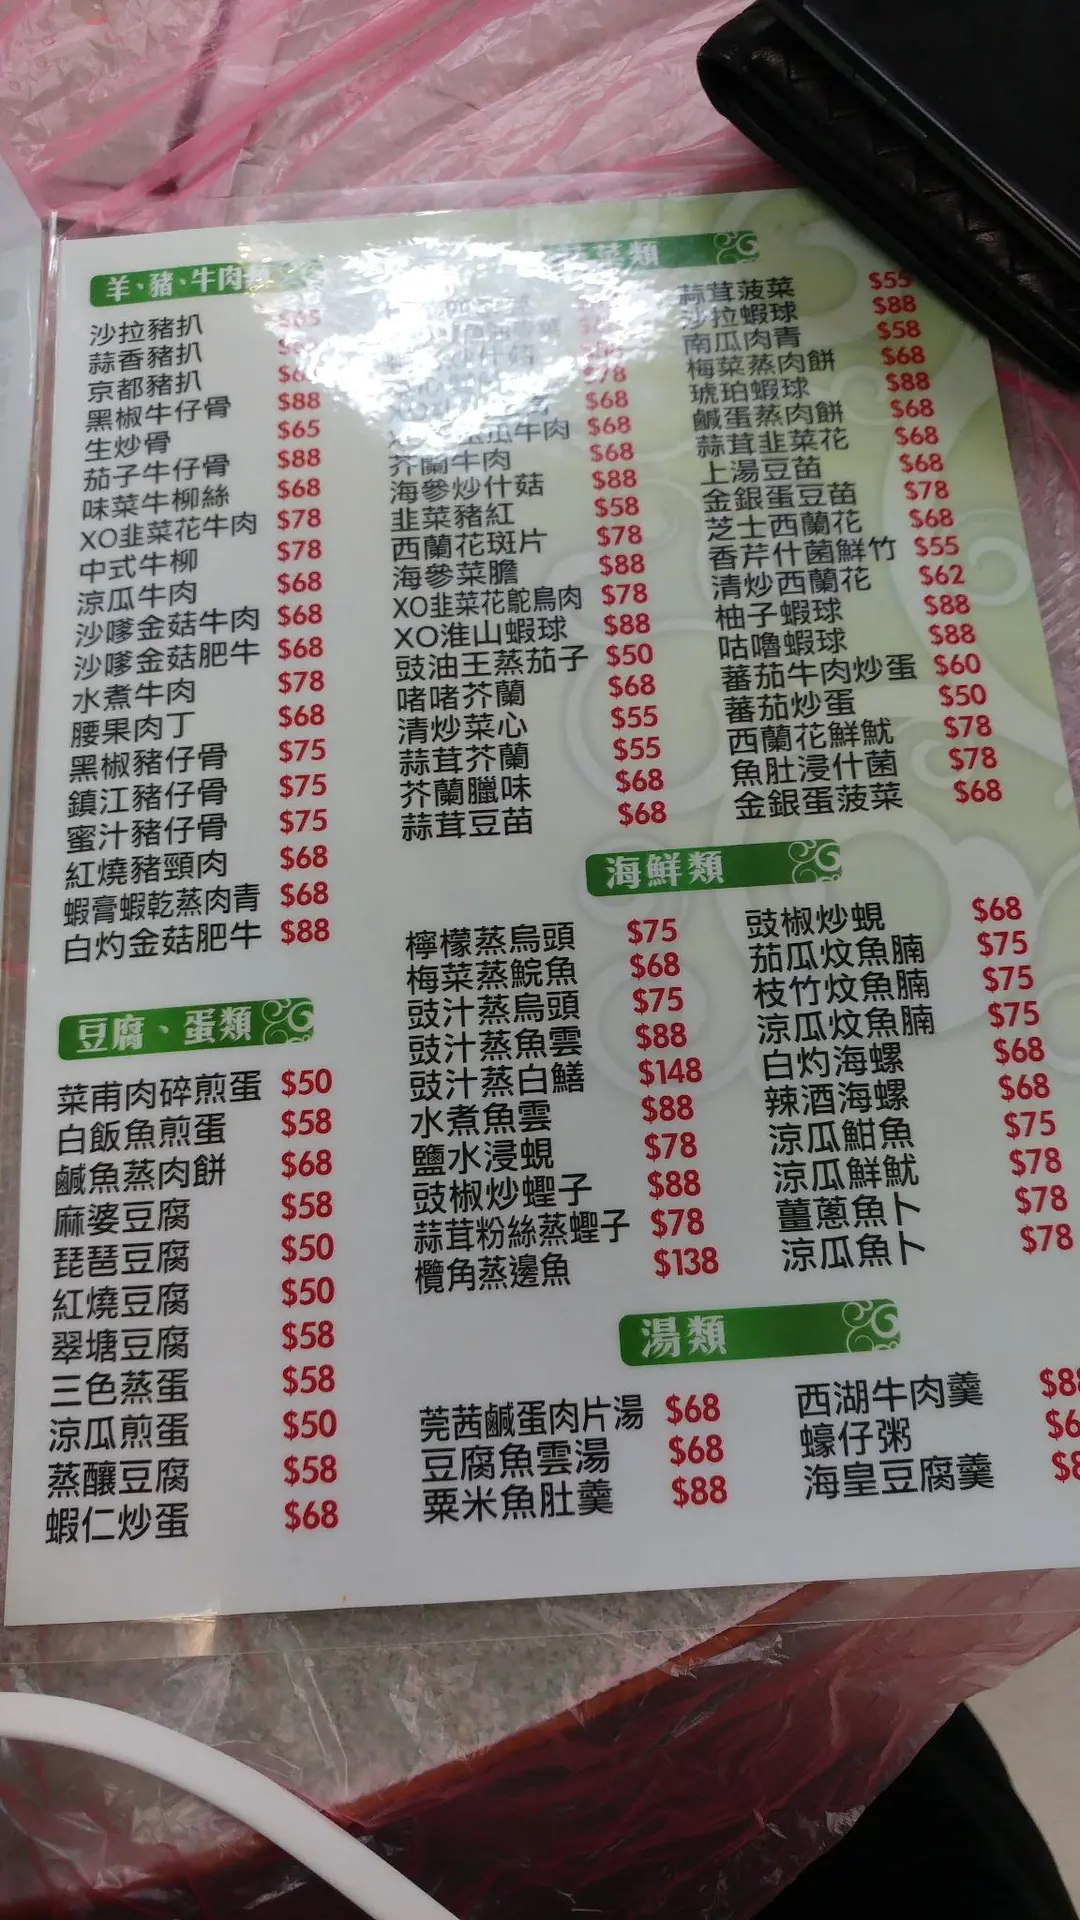 羊、豬、牛肉
沙拉豬扒 $65
蒜香豬扒
京都豬扒
黑椒牛仔骨 $88
生炒骨 $65
茄子牛仔骨 $88
味菜牛柳絲 $68
XO韭菜花牛肉 $78
中式牛柳 $78
涼瓜牛肉 $68
沙嗲金菇牛肉 $68
沙嗲金菇肥牛 $68
水煮牛肉 $78
腰果肉丁 $68
黑椒豬仔骨 $75
鎮江豬仔骨 $75
蜜汁豬仔骨 $75
紅燒豬頸肉 $68
蝦膏蝦乾蒸肉青 $68
白灼金菇肥牛 $88
豆腐、蛋類
菜甫肉碎煎蛋 $50
白飯魚煎蛋 $58
鹹魚蒸肉餅 $68
麻婆豆腐 $58
琵琶豆腐 $50
紅燒豆腐 $50
翠塘豆腐 $58
三色蒸蛋 $58
涼瓜煎蛋 $50
蒸釀豆腐 $58
蝦仁炒蛋 $68
菜類
什菇
$78
$68
瓜牛肉 $68
芥蘭牛肉 $68
海參炒什菇 $88
韭菜豬紅 $58
西蘭花斑片 $78
海參菜膽 $88
XO韭菜花鴕鳥肉 $78
XO淮山蝦球 $88
豉油王蒸茄子 $50
啫啫芥蘭 $68
清炒菜心 $55
蒜茸芥蘭 $55
芥蘭臘味 $68
蒜茸豆苗 $68
蒜茸菠菜 $55
沙拉蝦球 $88
南瓜肉青 $58
梅菜蒸肉餅 $68
琥珀蝦球 $88
鹹蛋蒸肉餅 $68
蒜茸韭菜花 $68
上湯豆苗 $68
金銀蛋豆苗 $78
芝士西蘭花 $68
香芹什菌鮮竹 $55
清炒西蘭花 $62
柚子蝦球 $88
咕嚕蝦球 $88
蕃茄牛肉炒蛋 $60
蕃茄炒蛋 $50
西蘭花鮮魷 $78
魚肚浸什菌 $78
金銀蛋菠菜 $68
海鮮類
檸檬蒸烏頭 $75
梅菜蒸鯇魚 $68
豉汁蒸烏頭 $75
豉汁蒸魚雲 $88
豉汁蒸白鱔 $148
水煮魚雲 $88
鹽水浸蜆 $78
豉椒炒蟶子 $88
蒜茸粉絲蒸蟶子 $78
欖角蒸邊魚 $138
豉椒炒蜆 $68
茄瓜炆魚腩 $75
枝竹炆魚腩 $75
涼瓜炆魚腩 $75
白灼海螺 $68
辣酒海螺 $68
涼瓜魽魚 $75
涼瓜鮮魷 $78
薑蔥魚卜 $78
涼瓜魚卜 $78
湯類
莞茜鹹蛋肉片湯 $68
豆腐魚雲湯 $68
粟米魚肚羹 $88
西湖牛肉羹
蠔仔粥
海皇豆腐羹